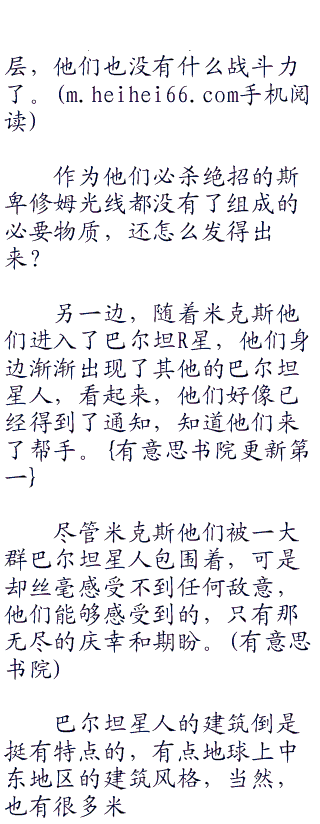 层，他们也没有什么战斗力
了。(m.heihei66.com手机阅
读)
作为他们必杀绝招的斯
卑修姆光线都没有了组成的
必要物质，还怎么发得出
来？
另一边，随着米克斯他
们进入了巴尔坦R星，他们身
边渐渐出现了其他的巴尔坦
星人，看起来，他们好像已
经得到了通知，知道他们来
了帮手。{有意思书院更新第
一}
尽管米克斯他们被一大
群巴尔坦星人包围着，可是
却丝毫感受不到任何敌意，
他们能够感受到的，只有那
无尽的庆幸和期盼。(有意思
书院)
巴尔坦星人的建筑倒是
挺有特点的，有点地球上中
东地区的建筑风格，当然，
也有很多米